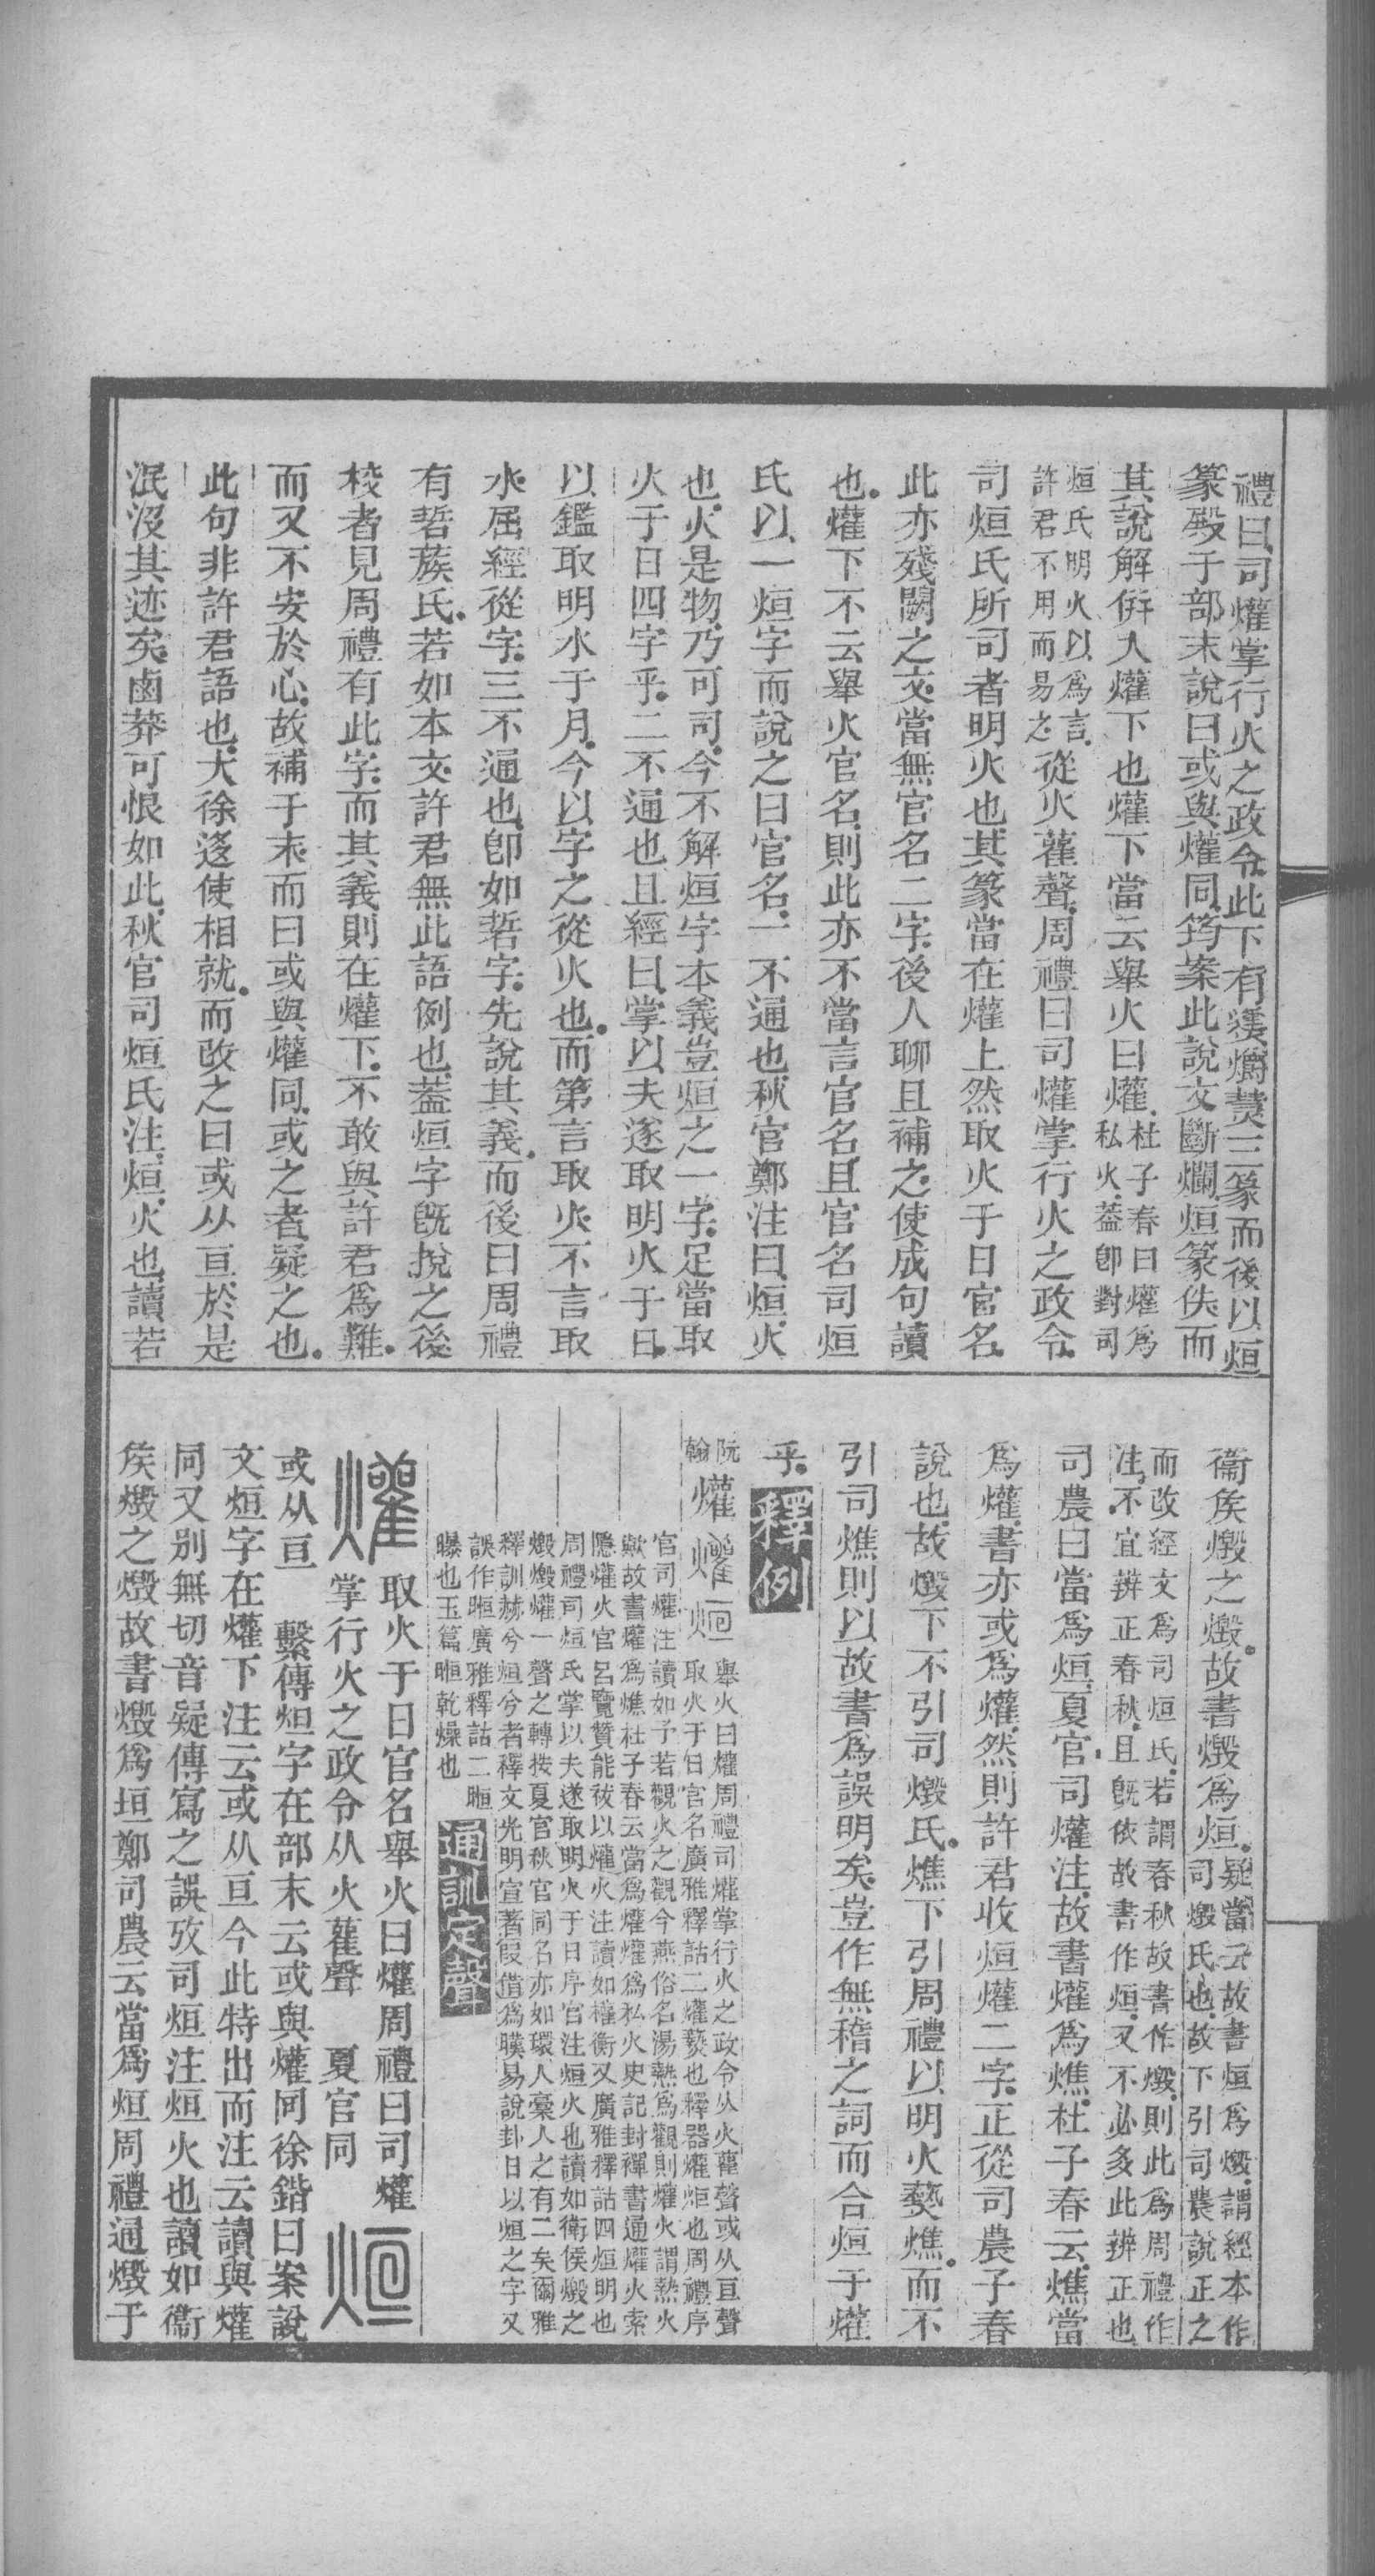 禮曰司爟掌行火之政令此下有㷼爝熭三篆而後以烜
篆殿于部末說曰或與爟同筠案此說文斷爛烜篆佚而
其說解倂入爟下也爟下當云舉火曰爟杜子春曰爟爲
私火蓋卽對司
烜氏明火以爲言
許君不用而易之從火雚聲周禮曰司爟掌行火之政令
司烜氏所司者明火也其篆當在爟上然取火于日官名
此亦殘闕之文當無官名二字後人聊且補之使成句讀
也爟下不云舉火官名則此亦不當言官名且官名司烜
氏以一烜字而說之曰官名一不通也秋官鄭注曰烜火
也火是物乃可司今不解烜字本義豈烜之一字足當取
火于日四字乎二不通也且經曰掌以夫遂取明火于日
以鑑取明水于月今以字之從火也而第言取火不言取
水屈經從字三不通也卽如硩字先說其義而後曰周禮
有硩蔟氏若如本文許君無此語例也蓋烜字旣挩之後
校者見周禮有此字而其義則在爟下不敢與許君爲難
而又不安於心故補于末而曰或與爟同或之者疑之也
此句非許君語也大徐遂使相就而改之曰或从亘於是
泯沒其迹矣鹵莽可恨如此秋官司烜氏注烜火也讀若
衞矦燬之燬故書燬爲烜疑當云故書烜爲燬謂經本作
司燬氏也故下引司農說正之
而改經文爲司烜氏若謂春秋故書作燬則此爲周禮作
注不宜辨正春秋且旣依故書作烜又不必多此辨正也
司農曰當爲烜夏官司爟注故書爟爲燋杜子春云燋當
爲爟書亦或爲爟然則許君收烜爟二字正從司農子春
說也故燬下不引司燬氏燋下引周禮以明火爇燋而不
引司燋則以故書爲誤明矣豈作無稽之詞而合烜于爟
乎釋例
阮
翰爟爟烜舉火曰爟周禮司爟掌行火之政令从火雚聲或从亘聲
取火于日官名廣雅釋詁二爟爇也釋器爟炬也周禮序
官司爟注讀如予若觀火之觀今燕俗名湯熱爲觀則爟火謂熱火
歟故書爟爲燋杜子春云當爲爟爟爲私火史記封禪書通爟火索
隱爟火官呂覽贊能祓以爟火注讀如權衡又廣雅釋詁四烜明也
周禮司烜氏掌以夫遂取明火于日序官注烜火也讀如衛侯燬之
燬燬爟一聲之轉按夏官秋官同名亦如環人槀人之有二矣爾雅
釋訓赫兮烜兮者釋文光明宣著叚借爲暵易說卦日以烜之字又
誤作晅廣雅釋詁二晅
曝也玉篇晅乾燥也通訓定聲
爟取火于日官名舉火曰爟周禮曰司爟
掌行火之政令从火雚聲　夏官同　烜
或从亘　繫傳烜字在部末云或與爟同徐鍇曰案說
文烜字在爟下注云或从亘今此特出而注云讀與爟
同又別無切音疑傳寫之誤攷司烜注烜火也讀如衞
矦燬之燬故書燬爲垣鄭司農云當爲烜周禮通燬于